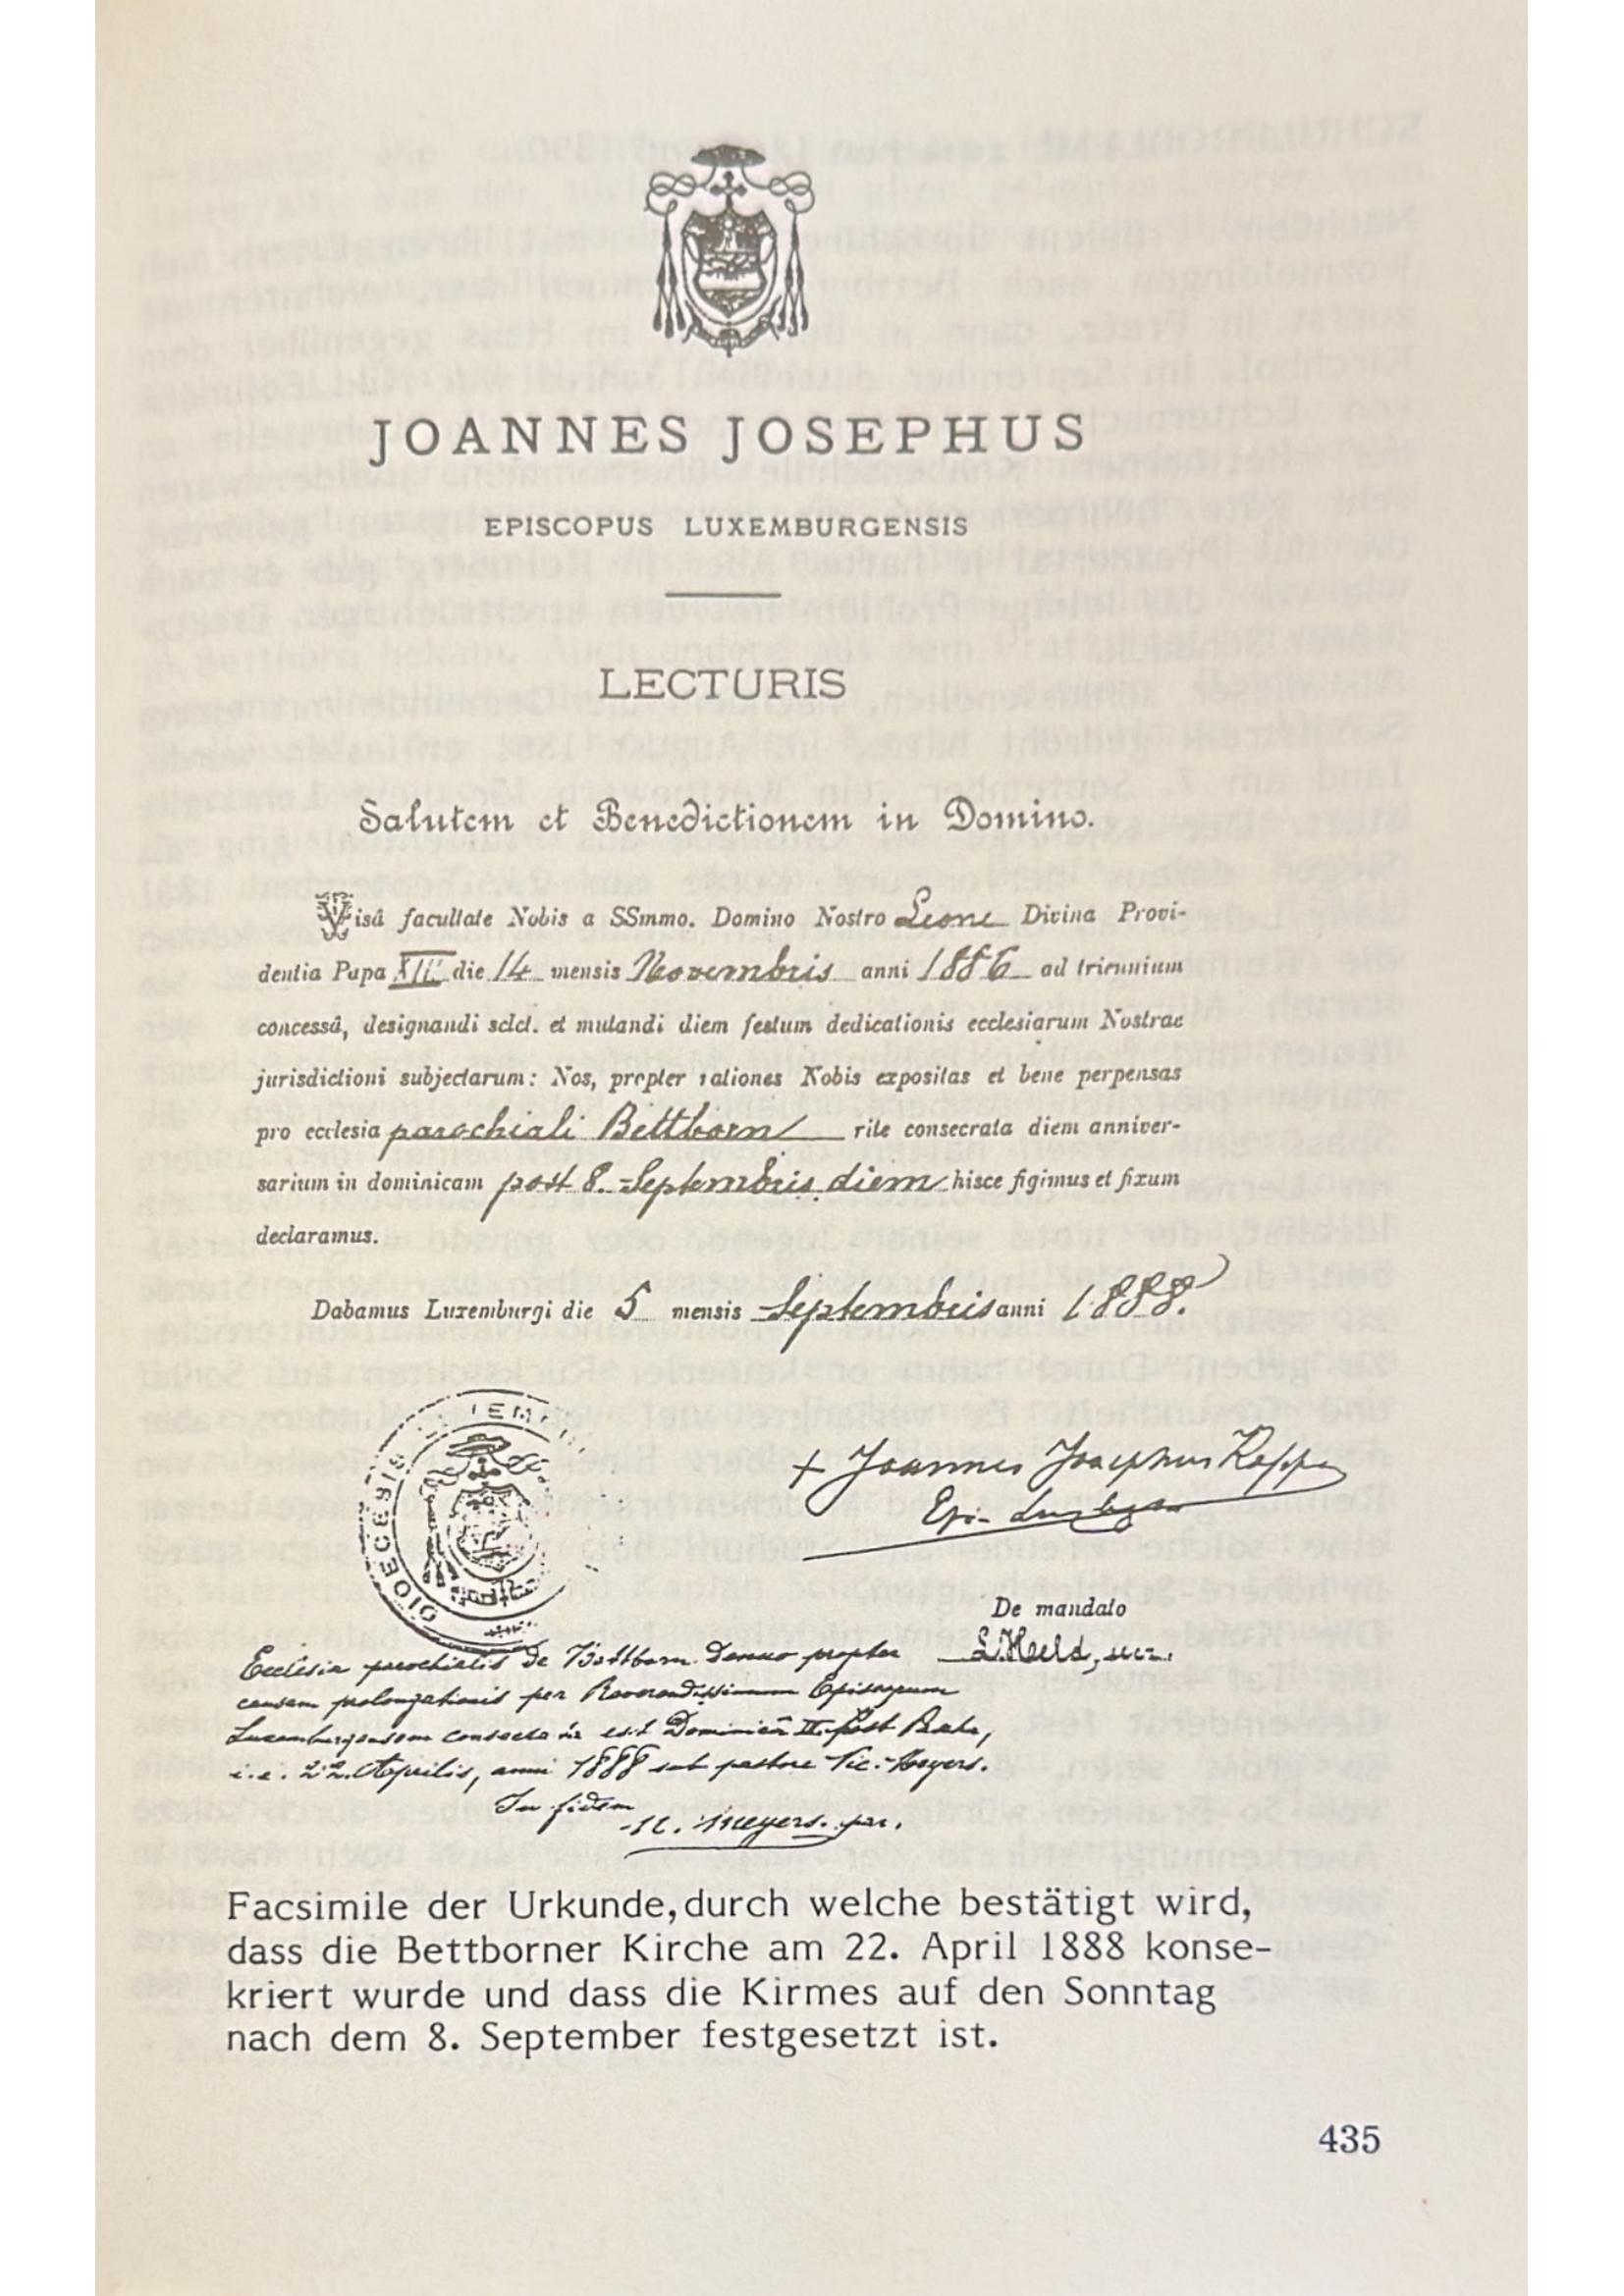 JOANNES JOSEPHUS
EPISCOPUS LUXEMBURGENSIS
LECTURIS
Salutem et Benedictionem in Domino.
Visâ facultate Nobis a SSmmo. Domino Nostro Leone Divina Provi-
dentia Papa XIII die 14 mensis Novembris anni 1886 ad triennium
concessâ, designandi sclct. et mutandi diem festum dedicationis ecclesiarum Nostrae
jurisdictioni subjectarum: Nos, propter rationes Nobis expositas et bene perpensas
pro ecclesia parochiali Bettborn rite consecrata diem anniver-
sarium in dominicam post 8. Septembris diem hisce figimus et fixum
declaramus.
Dabamus Luxemburgi die 5 mensis Septembris anni 1888.
DIOECESIS
+ Joannes Josephus Koppes
De mandato
Ecclesia parochialis de Bettborn denuo propter
causam prolongationis per Reverendissimum Episcopum
Luxemburgensem consecrata est Dominicâ II post Pascha,
i.e. 22. Aprilis, anni 1888 sub pastore Nic. Meyers.
In fidem
N. Meyers. par.
Facsimile der Urkunde, durch welche bestätigt wird,
dass die Bettborner Kirche am 22. April 1888 konse-
kriert wurde und dass die Kirmes auf den Sonntag
nach dem 8. September festgesetzt ist.
435